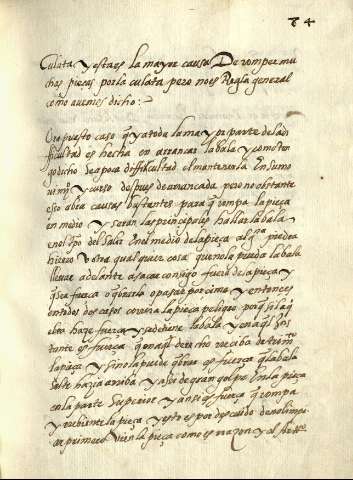 74
Culata, y esta es la mayor causa De romper mu
chas pieças por la culata pero no es Regla general
como auemos dicho:
puesto caso q̃ ya toda la mayor parte de la di
ficultad es hecha en arrancar la bala y como ten
go dicho de a poca difficultad el mantenerla En su mo
uimᵗᵒ y curso despues de arrancada pero no obstante
esto abra causas bastantes para q̃ rompa la pieça
en medio y seran las principales hallar la bala
en el tpo del salir En el medio de la pieça alg.ⁿᵃ piedra
hierro v otra qual quier cosa que no la pueda la bala
lleuar adelante a sacar consigo fuera de la pieça y
q̃ sea fuerça o quebrarlo o pasar por cima y entonces
en todos dos casos correra la pieça peligro porq̃ si la q̃
ebra haze fuerça y se detiene la bala y en aq̃l yns
tante es fuerça q̃ en aq̃l derecho reciba detrimᵗᵒ
la pieça y si no la puede q̃brar es fuerça q̃ la bala
salte hazia arriba y a si de gran golpe En la pieça
en la parte superior y ansi es fuerça q̃ rompa
y rebiente la pieça y esto es por descuido de no limpi
ar primero bien la pieça como es razon y al